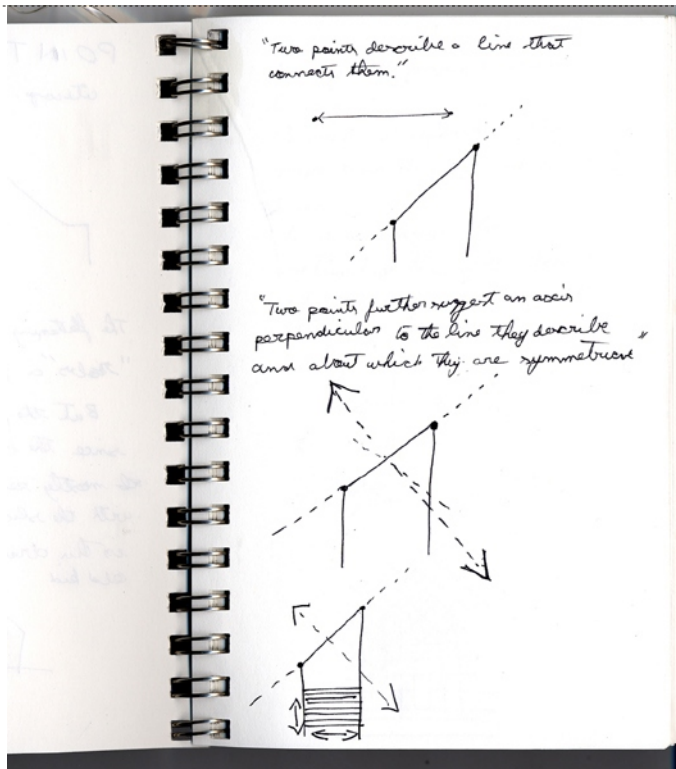 "Two points describe a line that
connects them."
"Two points further suggest an axis
perpendicular to the line they describe
and about which they are symmetrical"
POINT
The
"
But